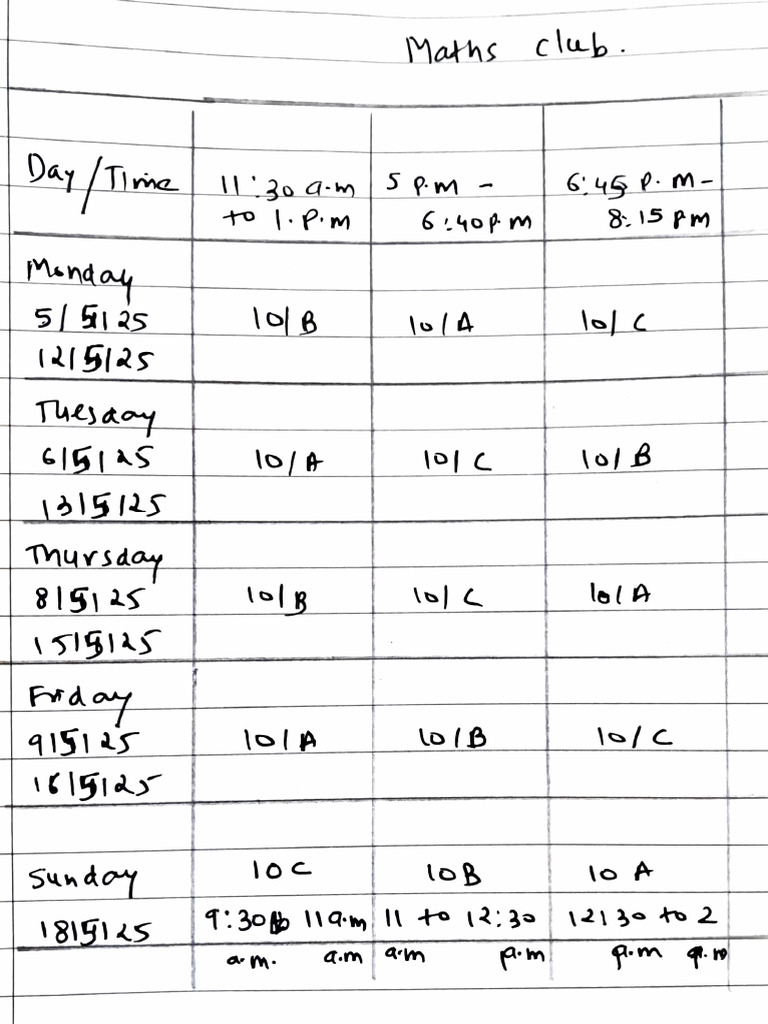 Maths club.
Day/Time 11:30 a.m 5 p.m - 6:45 p.m-
to 1.p.m 6:40pm 8:15 pm
Monday
5/5/25 10/B 10/A 10/C
12/5/25
Tuesday
6/5/25 10/A 10/C 10/B
13/5/25
Thursday
8/5/25 10/B 10/C 10/A
15/5/25
Friday
9/5/25 10/A 10/B 10/C
16/5/25
Sunday 10C 10B 10 A
18/5/25 9:30 to 11a.m 11 to 12:30 12:30 to 2
a.m. a.m a.m p.m p.m p.m